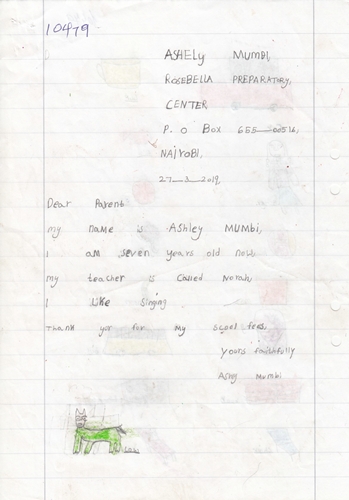 10479
ASHELy MUMBI,
ROSEBELLA PREPARATORY,
CENTER
P. O BOX 655—00516,
NAIROBI,
27—3—2019,
Dear Parent
my name is Ashley MUMBI,
I am seven years old now,
my teacher is Called Norah,
I Like singing
Thank yor for my scool fees,
yours faithfully
Ashy Mumbi